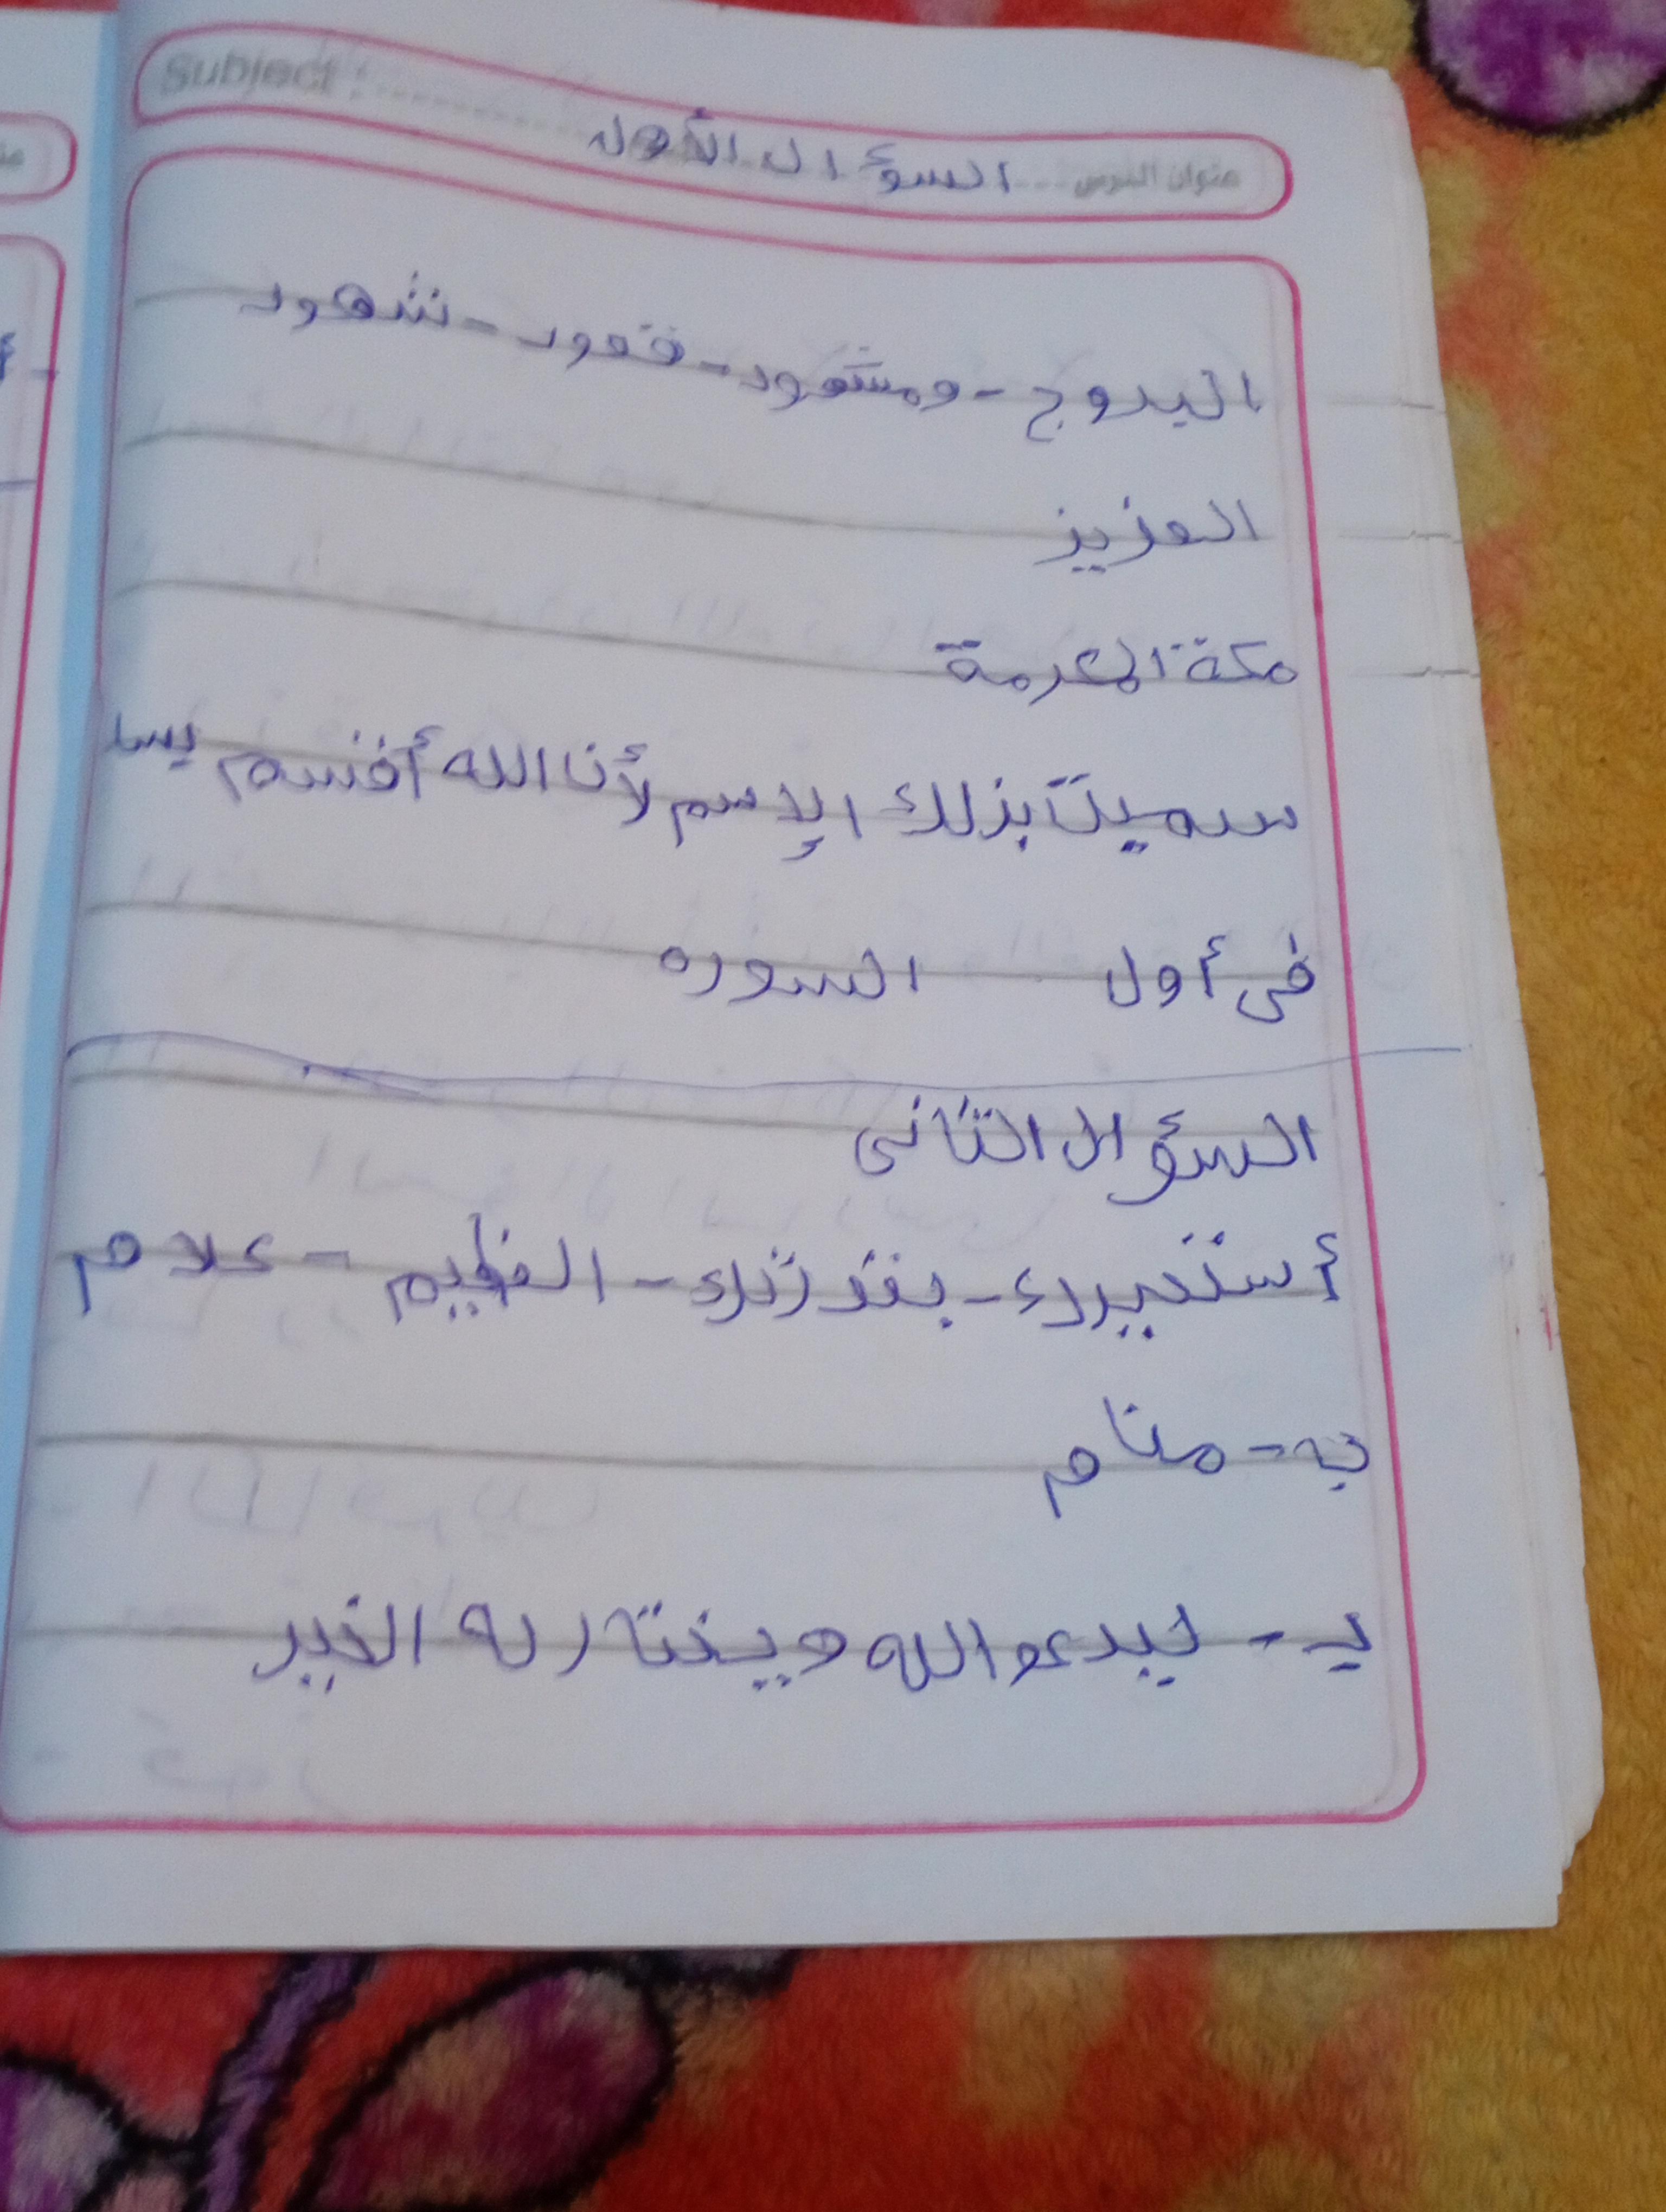 Subject :
عنوان الدرس السؤال الأول
البروج - ومشهود - قعود - شهود
العزيز
مكة المكرمة
سميت بذلك الإسم لأن الله أقسم بسا
فى أول السوره
السؤال الثانى
أستخيرك - بقدرتك - العظيم - علام
ب - منام
ج - ليدعو الله ويختار له الخير